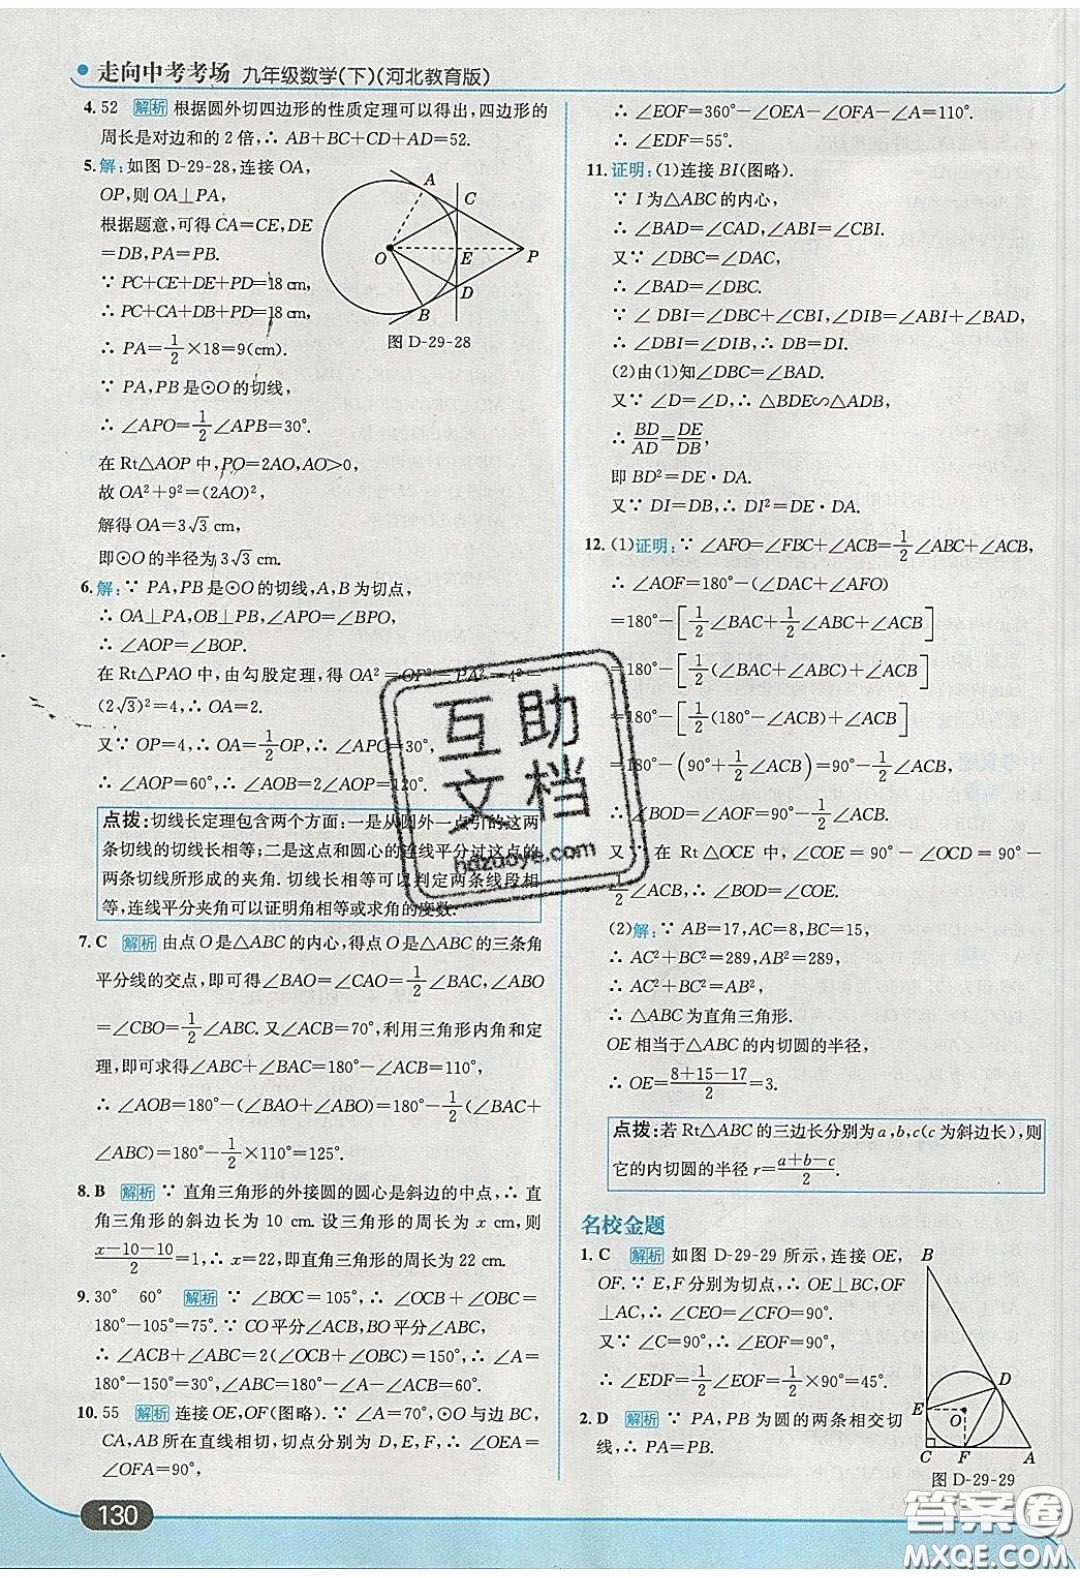 走向中考考场 九年级数学(下)(河北教育版)
4. 52 解析 根据圆外切四边形的性质定理可以得出,四边形的
周长是对边和的 2 倍,∴ AB+BC+CD+AD=52.
5. 解:如图 D-29-28,连接 OA,
OP,则 OA⊥PA,
根据题意,可得 CA=CE,DE
=DB,PA=PB.
∵ PC+CE+DE+PD=18 cm,
∴ PC+CA+DB+PD=18 cm,
∴ PA=1/2×18=9(cm).
∵ PA,PB 是⊙O 的切线,
∴ ∠APO=1/2∠APB=30°.
在 Rt△AOP 中,PO=2AO,AO>0,
故 OA²+9²=(2AO)²,
解得 OA=3√3 cm,
即⊙O 的半径为 3√3 cm.
A
C
O
E
P
D
B
图 D-29-28
6. 解:∵ PA,PB 是⊙O 的切线,A,B 为切点,
∴ OA⊥PA,OB⊥PB,∠APO=∠BPO,
∴ ∠AOP=∠BOP.
在 Rt△PAO 中,由勾股定理,得 OA²=OP²-PA²=4²-
(2√3)²=4,∴ OA=2.
又∵ OP=4,∴ OA=1/2OP,∴ ∠APO=30°,
∴ ∠AOP=60°,∴ ∠AOB=2∠AOP=120°.
点拨:切线长定理包含两个方面:一是从圆外一点引的这两
条切线的切线长相等;二是这点和圆心的连线平分过这点的
两条切线所形成的夹角.切线长相等可以判定两条线段相
等,连线平分夹角可以证明角相等或求角的度数.
7. C 解析 由点 O 是△ABC 的内心,得点 O 是△ABC 的三条角
平分线的交点,即可得 ∠BAO=∠CAO=1/2∠BAC,∠ABO
=∠CBO=1/2∠ABC. 又∠ACB=70°,利用三角形内角和定
理,即可求得∠ABC+∠BAC=180°-∠ACB=110°,
∴ ∠AOB=180°-(∠BAO+∠ABO)=180°-1/2(∠BAC+
∠ABC)=180°-1/2×110°=125°.
8. B 解析 ∵ 直角三角形的外接圆的圆心是斜边的中点,∴ 直
角三角形的斜边长为 10 cm. 设三角形的周长为 x cm,则
(x-10-10)/2=1,∴ x=22,即直角三角形的周长为 22 cm.
9. 30° 60° 解析 ∵ ∠BOC=105°,∴ ∠OCB+∠OBC=
180°-105°=75°.∵ CO 平分∠ACB,BO 平分∠ABC,
∴ ∠ACB+∠ABC=2(∠OCB+∠OBC)=150°,∴ ∠A=
180°-150°=30°,∴ ∠ABC=180°-∠A-∠ACB=60°.
10. 55 解析 连接 OE,OF(图略).∵ ∠A=70°,⊙O 与边 BC,
CA,AB 所在直线相切,切点分别为 D,E,F,∴ ∠OEA=
∠OFA=90°,
∴ ∠EOF=360°-∠OEA-∠OFA-∠A=110°.
∴ ∠EDF=55°.
11. 证明:(1)连接 BI(图略).
∵ I 为△ABC 的内心,
∴ ∠BAD=∠CAD,∠ABI=∠CBI.
又∵ ∠DBC=∠DAC,
∴ ∠BAD=∠DBC.
∵ ∠DBI=∠DBC+∠CBI,∠DIB=∠ABI+∠BAD,
∴ ∠DBI=∠DIB,∴ DB=DI.
(2)由(1)知∠DBC=∠BAD.
又∵ ∠D=∠D,∴ △BDE∽△ADB,
∴ BD/AD=DE/DB,
即 BD²=DE·DA.
又∵ DI=DB,∴ DI²=DE·DA.
12. (1)证明:∵ ∠AFO=∠FBC+∠ACB=1/2∠ABC+∠ACB,
∴ ∠AOF=180°-(∠DAC+∠AFO)
=180°-[1/2∠BAC+1/2∠ABC+∠ACB]
=180°-[1/2(∠BAC+∠ABC)+∠ACB]
=180°-[1/2(180°-∠ACB)+∠ACB]
=180°-(90°+1/2∠ACB)=90°-1/2∠ACB,
∴ ∠BOD=∠AOF=90°-1/2∠ACB.
又∵ 在 Rt△OCE 中,∠COE=90°-∠OCD=90°-
1/2∠ACB,∴ ∠BOD=∠COE.
(2)解:∵ AB=17,AC=8,BC=15,
∴ AC²+BC²=289,AB²=289,
∴ AC²+BC²=AB²,
∴ △ABC 为直角三角形.
OE 相当于△ABC 的内切圆的半径,
∴ OE=(8+15-17)/2=3.
点拨:若 Rt△ABC 的三边长分别为 a,b,c(c 为斜边长),则
它的内切圆的半径 r=(a+b-c)/2.
名校金题
1. C 解析 如图 D-29-29 所示,连接 OE,
OF.∵ E,F 分别为切点,∴ OE⊥BC,OF
⊥AC,∴ ∠CEO=∠CFO=90°.
又∵ ∠C=90°,∴ ∠EOF=90°.
∴ ∠EDF=1/2∠EOF=1/2×90°=45°.
2. D 解析 ∵ PA,PB 为圆的两条相交切
线,∴ PA=PB.
B
D
E
O
C
F
A
图 D-29-29
130
互助
文档
hdzuoye.com
答案圈
MXQE.COM